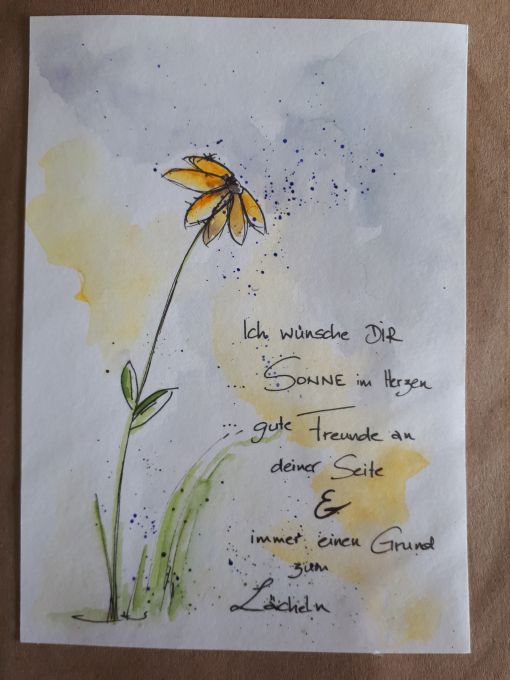 Ich wünsche DIR
SONNE im Herzen
gute Freunde an
deiner Seite
&
immer einen Grund
zum
Lächeln